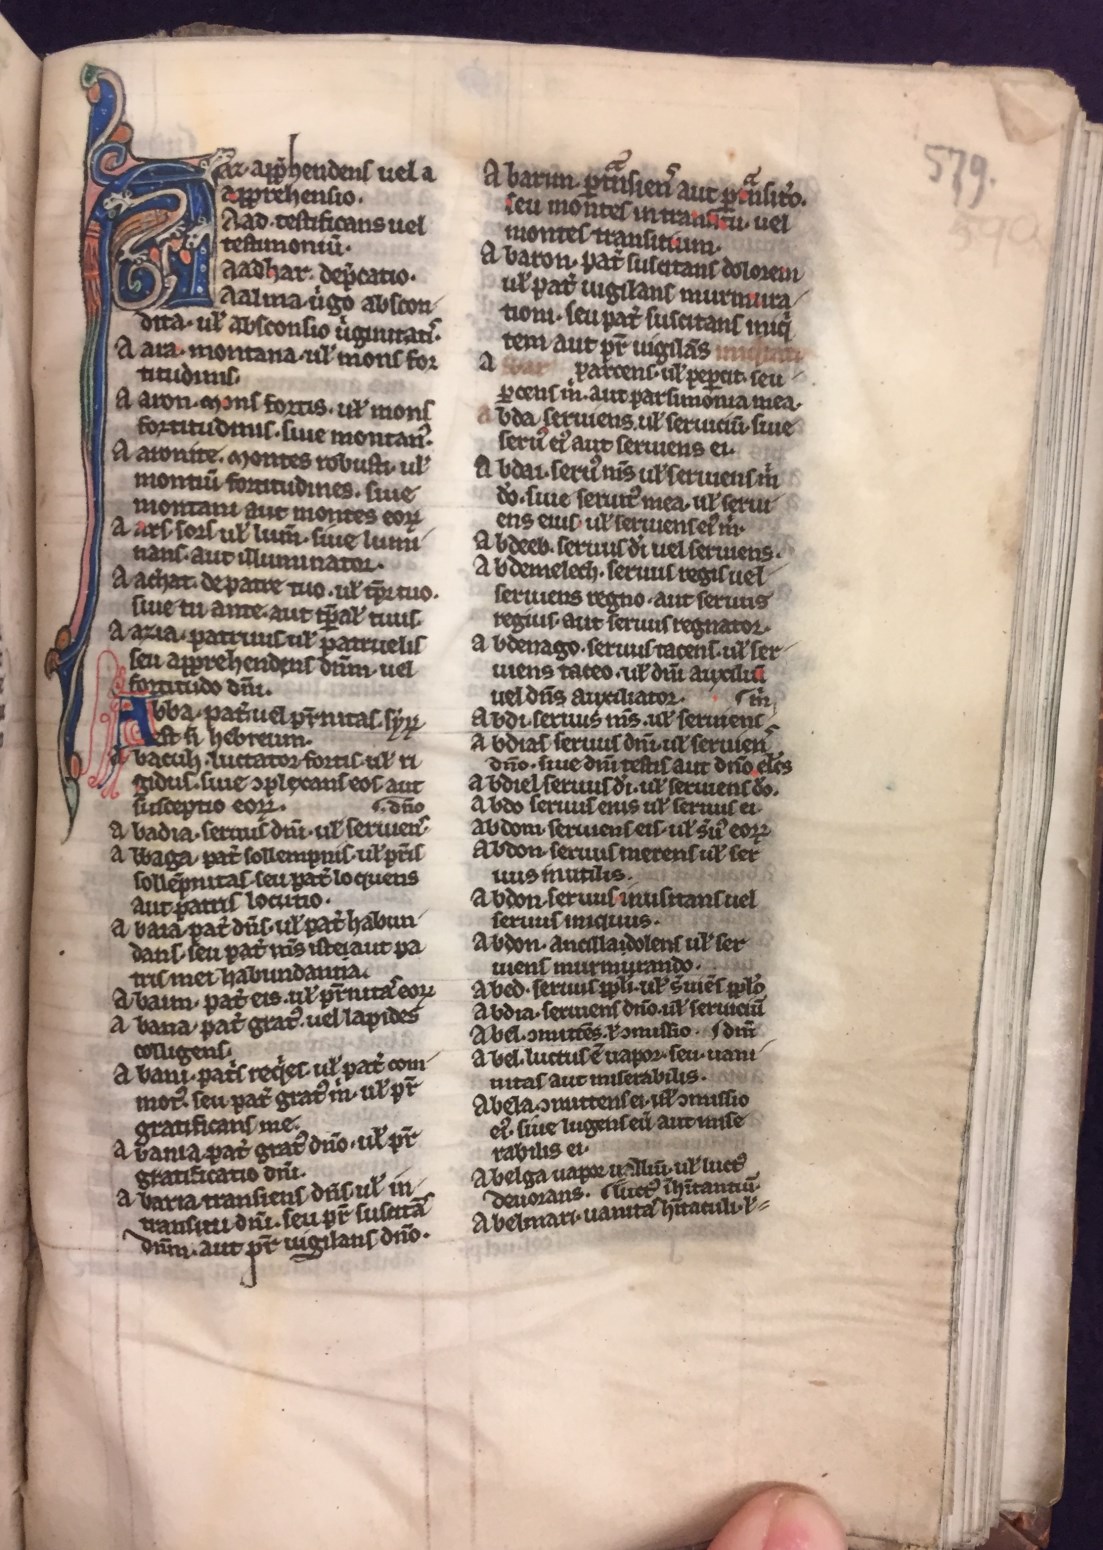 Aaz. app̄hendens uel a
apprehensio.
Aad. testificans uel
testimoniū.
Aadhar. dep̄catio.
Aalma. ůgo abscon
dita. ul̛ absconsio ůginitatis.
Aaia. montana. ul̛ mons for
titudinis.
Aaron. mons fortis. ul̛ mons
fortitudinis. siue montan᷒.
Aaronite. montes robusti. ul̛
montiū fortitudines. siue
montani aut montes eoꝝ
Aars. sors ul̛ lum̄. siue lumi
nans. aut illuminator.
Aachat. de patre tuo. ul̛
siue tu ante. aut tuus.
Aazia. patruus ul̛ patruelis
seu apprehendens dn̄m. uel
fortitudo dn̄i.
Abba. pat᷑ uel pr̄nitas.
est n̄ hebreum.
Abacuh. luctator fortis. ul̛ ri
gidus. siue ꝯplexans eos aut
susceptio eoꝝ. dn̄o
Abadia. seruus dn̄i. ul̛ seruiens
Abbaga. pat᷑ sollempnis. ul̛ pr̄is
sollēpnitas. seu pat᷑ loquens
aut patris locutio.
Abaia. pat᷑ dn̄s. ul̛ pat᷑ habun
dans. seu pat᷑ ms iste. aut pa
tris mei habundantia.
Abaim. pat᷑ eis. ul̛ pr̄nitas eoꝝ
Abana. pat᷑ grat᷒. uel lapides
colligens.
Abani. pat᷑s reqͥes. ul̛ pat᷑ com
mot᷒. seu pat᷑ grat᷒ m̊. ul̛ pr̄
gratificans me.
Abania. pat᷑ grat᷒ dn̄o. ul̛ pr̄
gratificatio dn̄i.
Abaria. transiens dn̄s ul̛ in
transitu dn̄i. seu pr̄ suscitās
dn̄m. aut pr̄ uigilans dn̄o.
Abarim. ꝑtͣnsiens aut ꝑtͣnsitō.
seu montes in transitu. uel
montes transituum.
Abaron. pat᷑ suscitans dolorem
ul̛ pat᷑ uigilans murmura
tioni. seu pat᷑ suscitans iniqͥ
tem aut pr̄ uigilās iniquitati
A parcens. ul̛ peꝑcit. seu
ꝑcens m̊. aut parsimonia mea.
Abda. seruiens. ul̛ seruiciū. siue
seru᷒ ei᷒. aut seruiens ei.
Abdai. seru᷒ ms ul̛ seruiens m̊
do̊. siue seruit᷒ mea. ul̛ serui
ens eius. ul̛ seruiens ei᷒ m̊.
Abdeeb. seruus di̊ uel seruiens.
Abdemelech. seruus regis uel
seruiens regno. aut seruus
regius. aut seruus regnator.
Abdenago. seruus tacens. ul̛ ser
uiens taceo. ul̛ dn̄i auxiliū
uel dn̄s auxiliator. m̊
Abdi. seruus ms. ul̛ seruiens
Abdias. seruus dn̄i. ul̛ seruiens
dn̄o. siue dn̄i testis aut dn̄o
Abdiel. seruus di̊. ul̛ seruiens do̊.
Abdo. seruus eius ul̛ seruus ei.
Abdom. seruiens eis. ul̛ su᷒ eoꝝ
Abdon. seruus merens ul̛ ser
uus inutilis.
Abdon. seruus inusitans uel
seruus iniquus.
Abdon. ancilla dolens ul̛ ser
uiens murmurando.
Abed. seruus ppl̛i. ul̛ s᷑uiēs ppl̛o
Abdia. seruiens dn̄o. ul̛ seruiciū
Abel. ꝯmittēs. ꝯmissio. dn̄i
Abel. luctus ē uapor. seu uani
nitas aut miserabilis.
Abela. ꝯmittens ei. ul̛ ꝯmissio
ei᷒. siue lugens eū aut mise
rabilis ei.
Abelga. uapor. ul̛ luct᷒
deuorans. luct᷒ hītantiū.
Abelmari. uanitas hītaculi.
579.
590